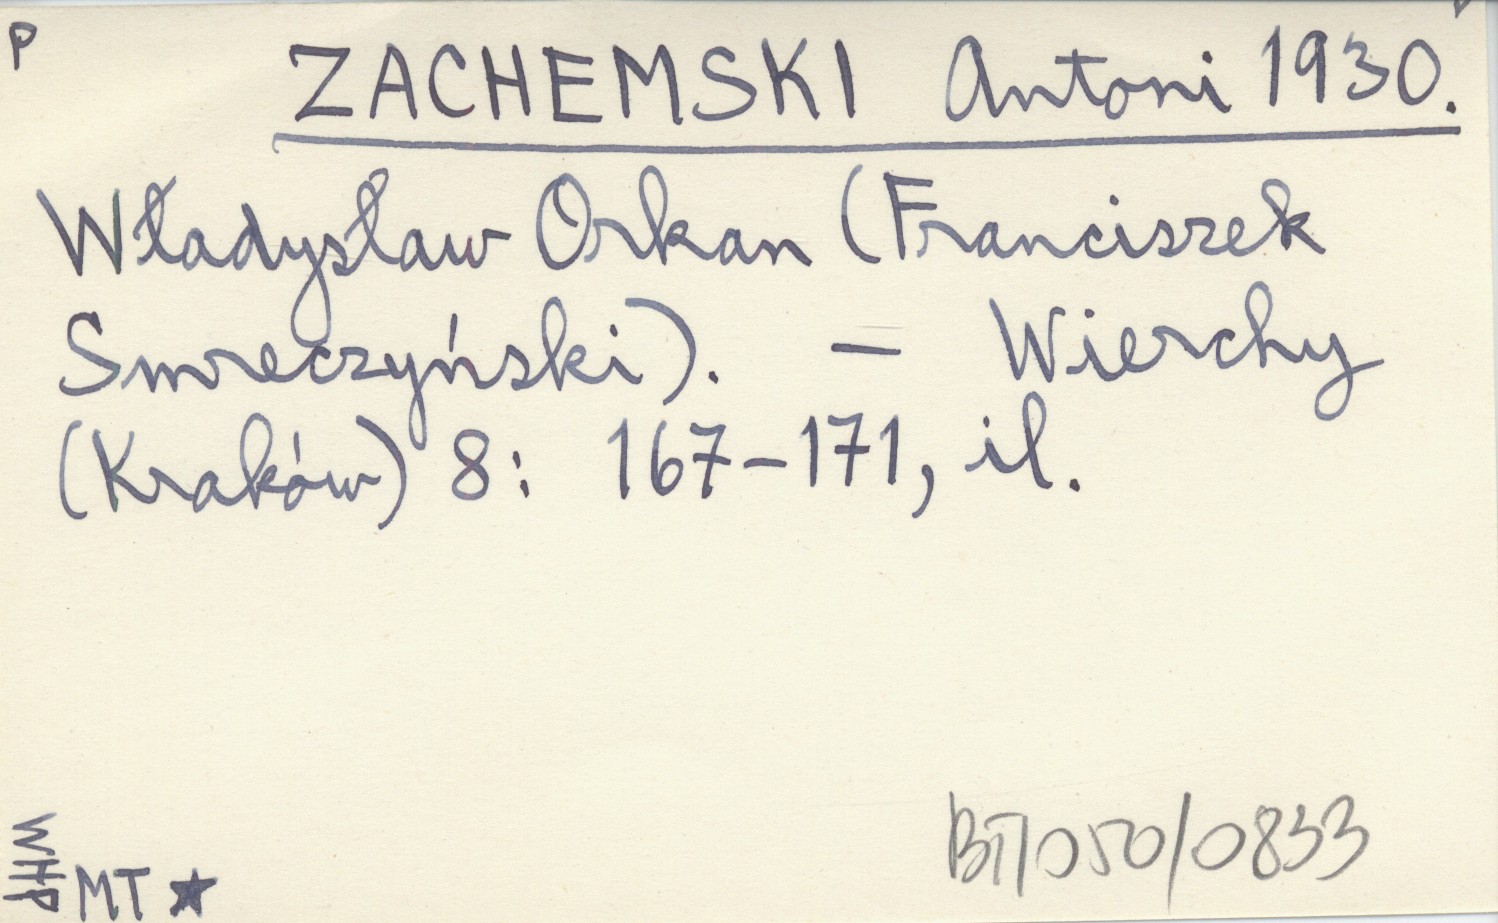 P
ZACHEMSKI Antoni 1930.
Władysław Orkan (Franciszek
Smreczyński). — Wierchy
(Kraków) 8: 167-171, il.
WHP
MT ★
BT/050/0833